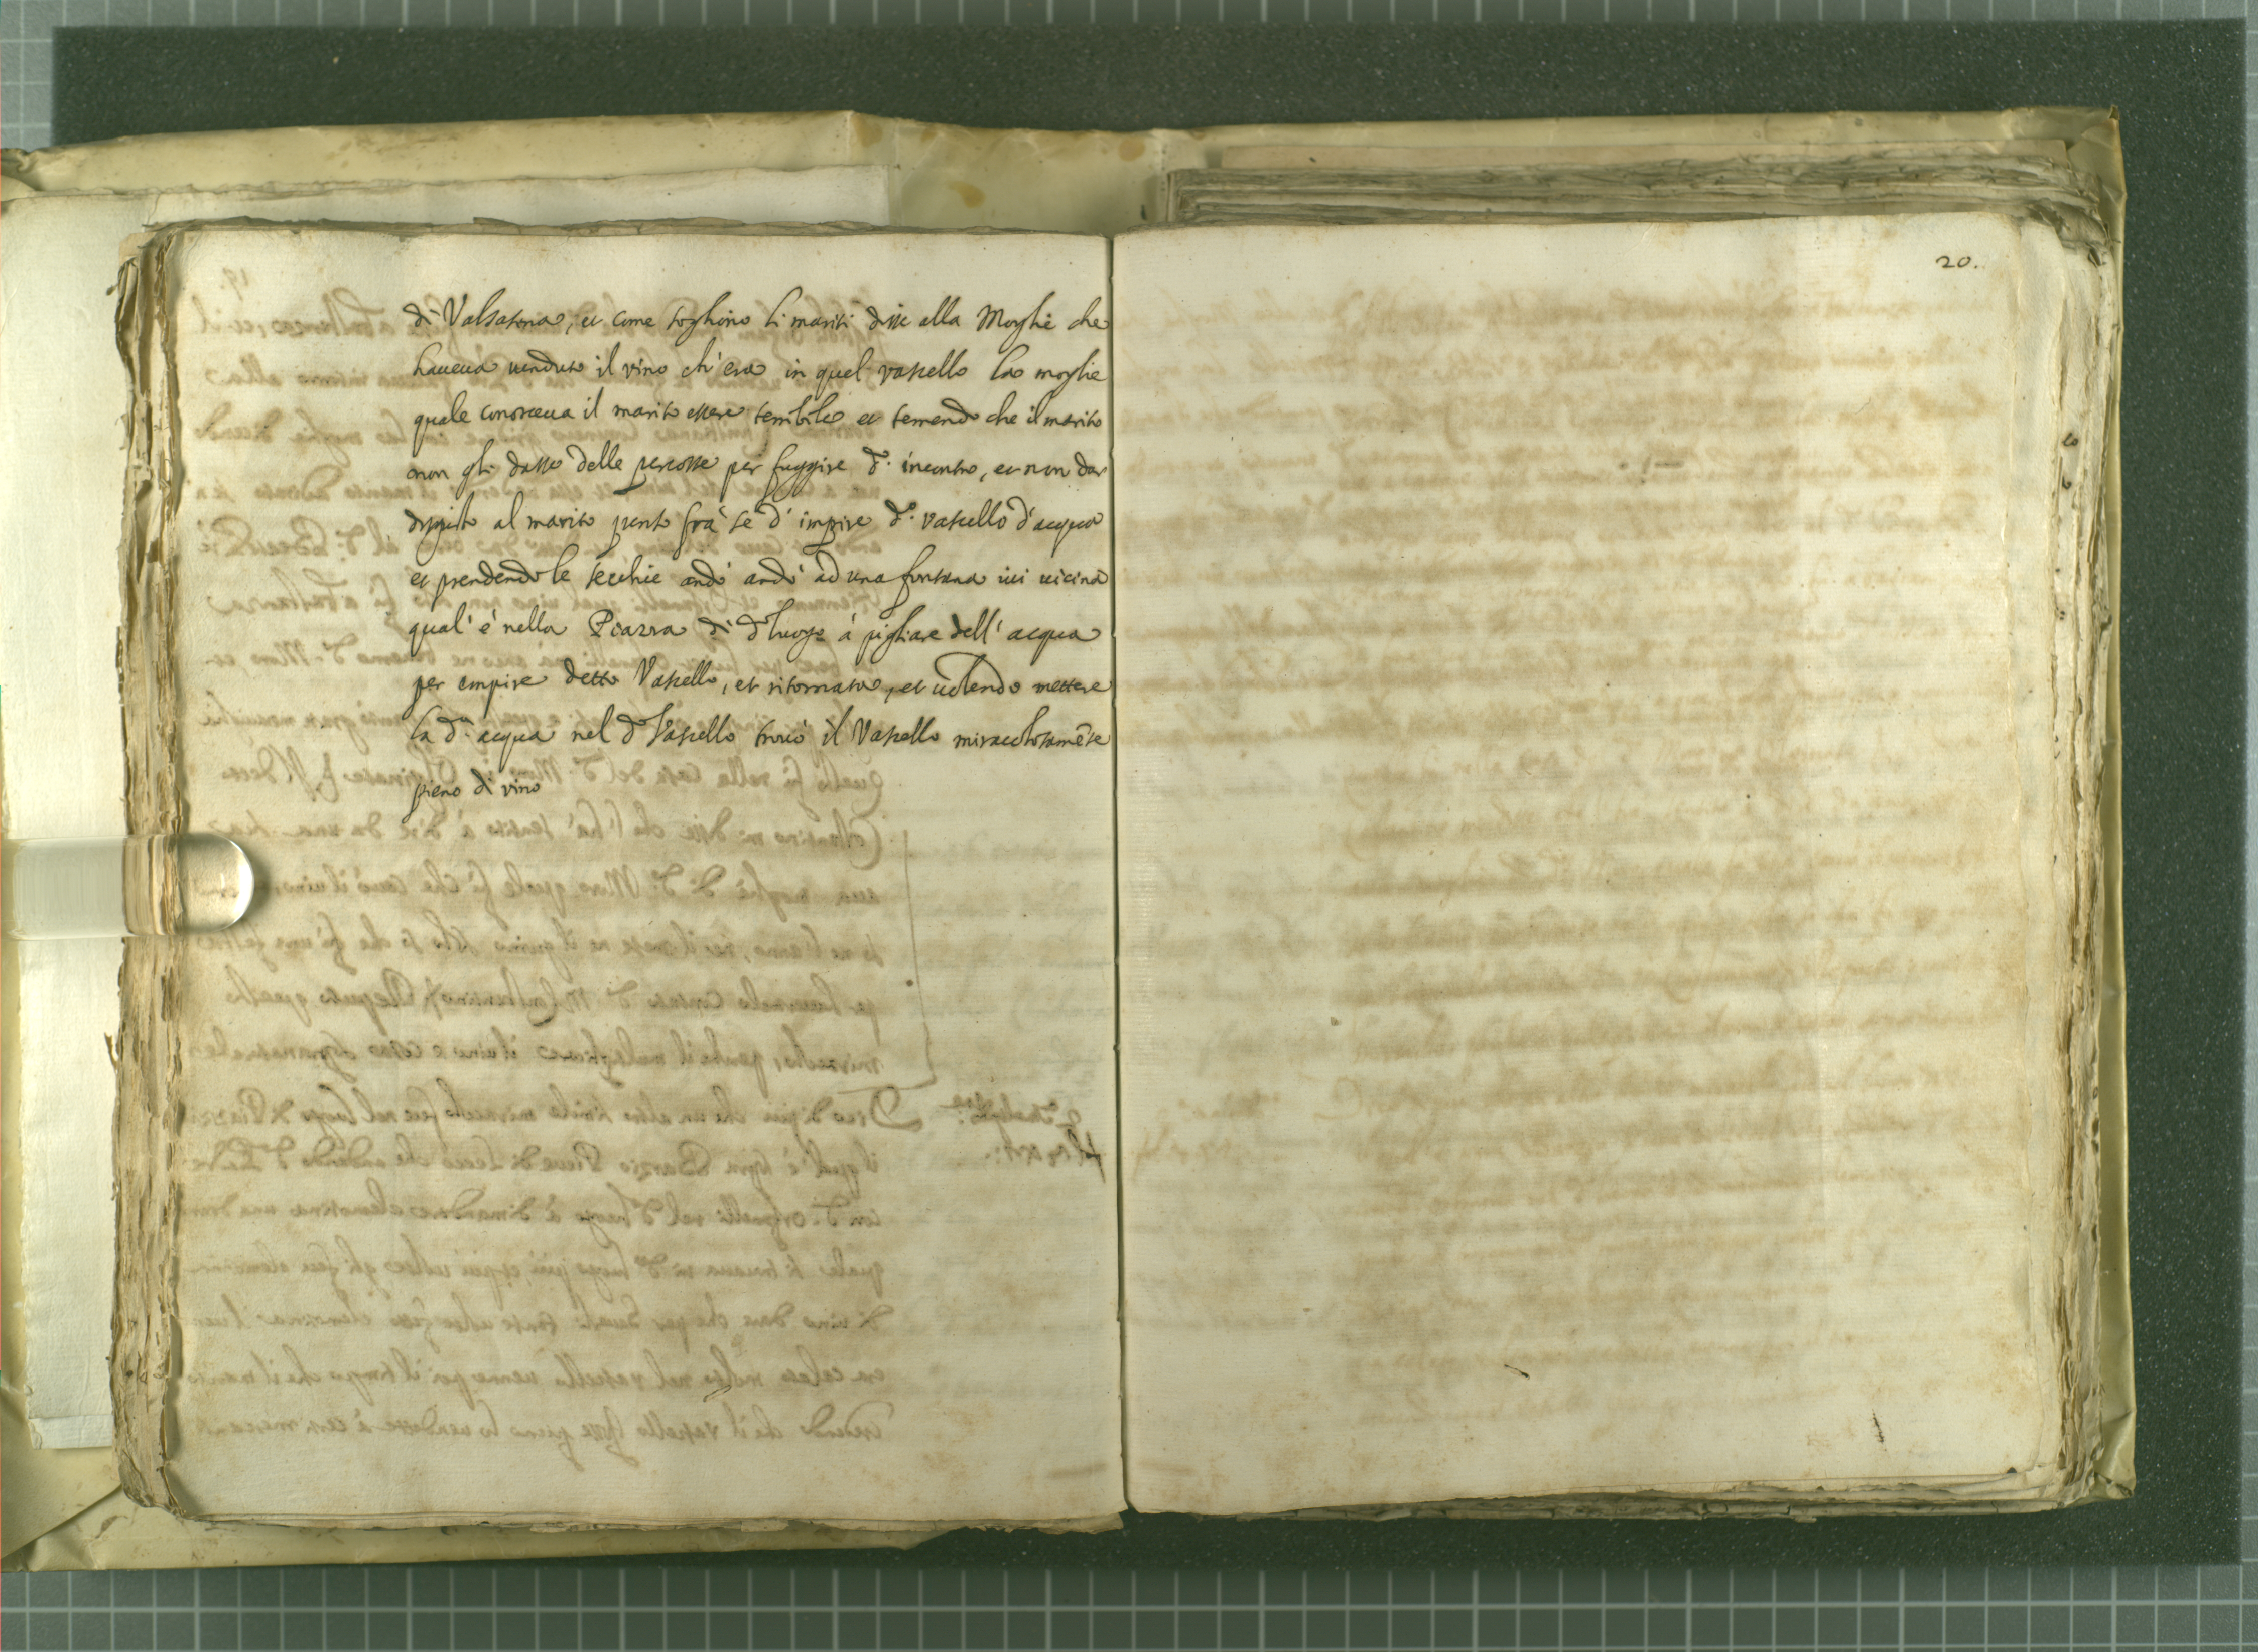 di Valsasina, et come sogliono li mariti disse alla Moglie che
haueua uenduto il vino ch'era in quel vassello la moglie
quale conosceua il marito essere terribile et temendo che il marito
non gli dasse delle percosse per fuggire d.º incontro, et non dar
disgusto al marito pensò frà se d'impire d.º vassello d'acqua
et prendendo le secchie andò andò ad una fontana iui uicina
qual'è nella Piazza di d.º luogo à pigliare dell'acqua
per empire detto Vassello, et ritornata, et uolendo mettere
la d.ª acqua nel d.º Vassello trouò il Vassello miracolosamẽte
pieno di vino
20.